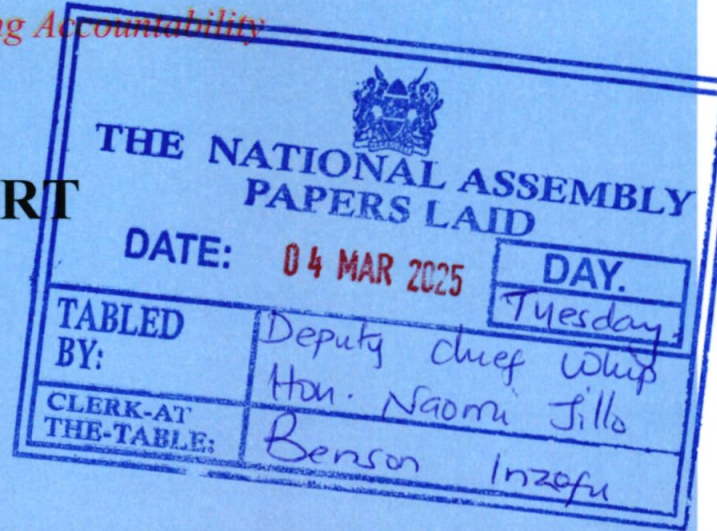 ng Accountability
RT
THE NATIONAL ASSEMBLY
PAPERS LAID
DATE: 04 MAR 2025
DAY.
Tuesday.
TABLED BY:
Deputy chief whip
Hon. Naomi Jillo
CLERK-AT THE-TABLE:
Benson Inzofu